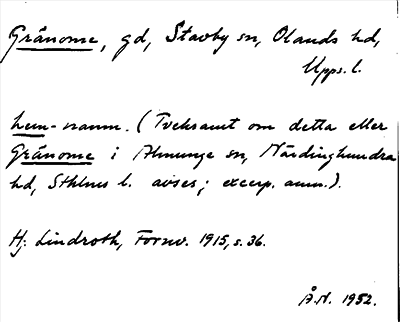 Gränome, gd, Stavby sn, Olands hd,
Upps. l.
hem-namn. (Tveksamt om detta eller
Gränome i Almunge sn, Närdinghundra
hd, Sthlms l. avses; excerp. anm.).
Hj. Lindroth, Fornv. 1915, s. 36.
Å.N. 1952.